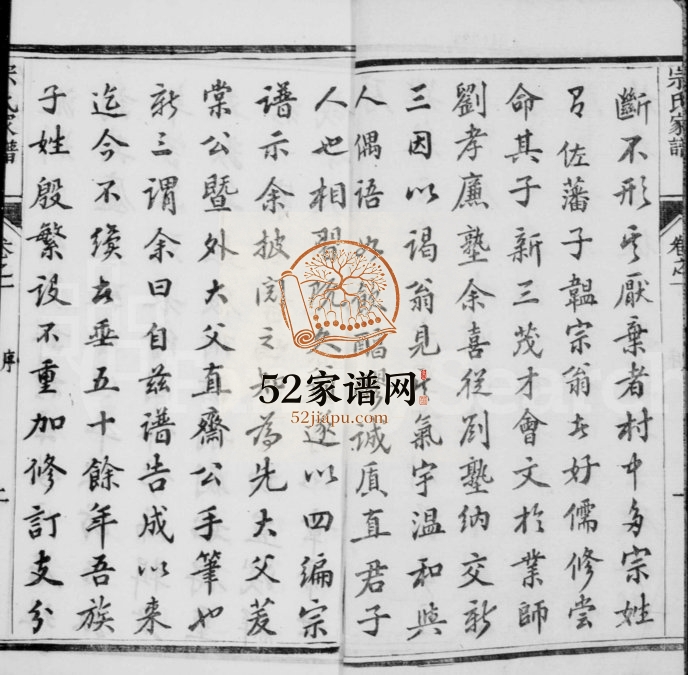 宗氏家譜 卷之一
斷不形其厭棄者村中多宗姓
佐藩子韞宗翁者好儒修嘗
命其子新三茂才會文於業師
劉孝廉塾余喜從劉塾納交新
三因以謁翁見其氣宇溫和與
人偶語如飲醇誠質直君子
人也相習既久遂以四編宗
譜示余披閱之知為先大父菱
棠公暨外大父直齋公手筆也
新三謂余曰自茲譜告成以來
迄今不續者垂五十餘年吾族
子姓殷繁設不重加修訂支分
宗氏家譜 卷之一 序 二
52家谱网
52jiapu.com